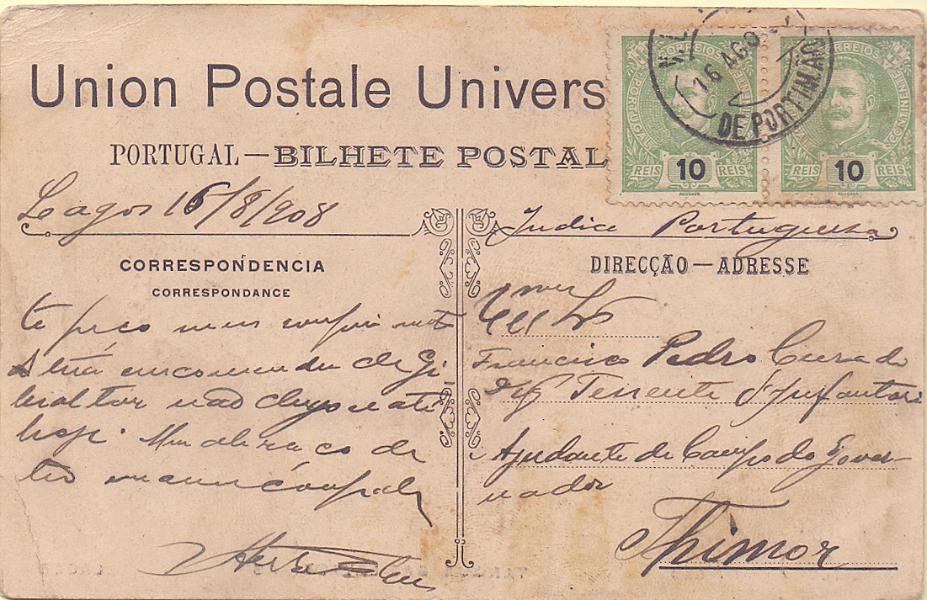 Union Postale Univers
PORTUGAL — BILHETE POSTAL
CORREIOS
10
REIS REIS
CORREIOS
10
REIS REIS
16 AGO
DE PORTIMÃO
Lagos 16/8/908
CORRESPONDENCIA
CORRESPONDANCE
te peço meu
encomenda de Gi
braltar não chegou até
hoje. Um abraço de
teu
India Portuguesa
DIRECÇÃO — ADRESSE
Francisco Pedro Curado
Dig Tenente d'Infantari
Ajudante de Campo do Gover-
nador
Thimor